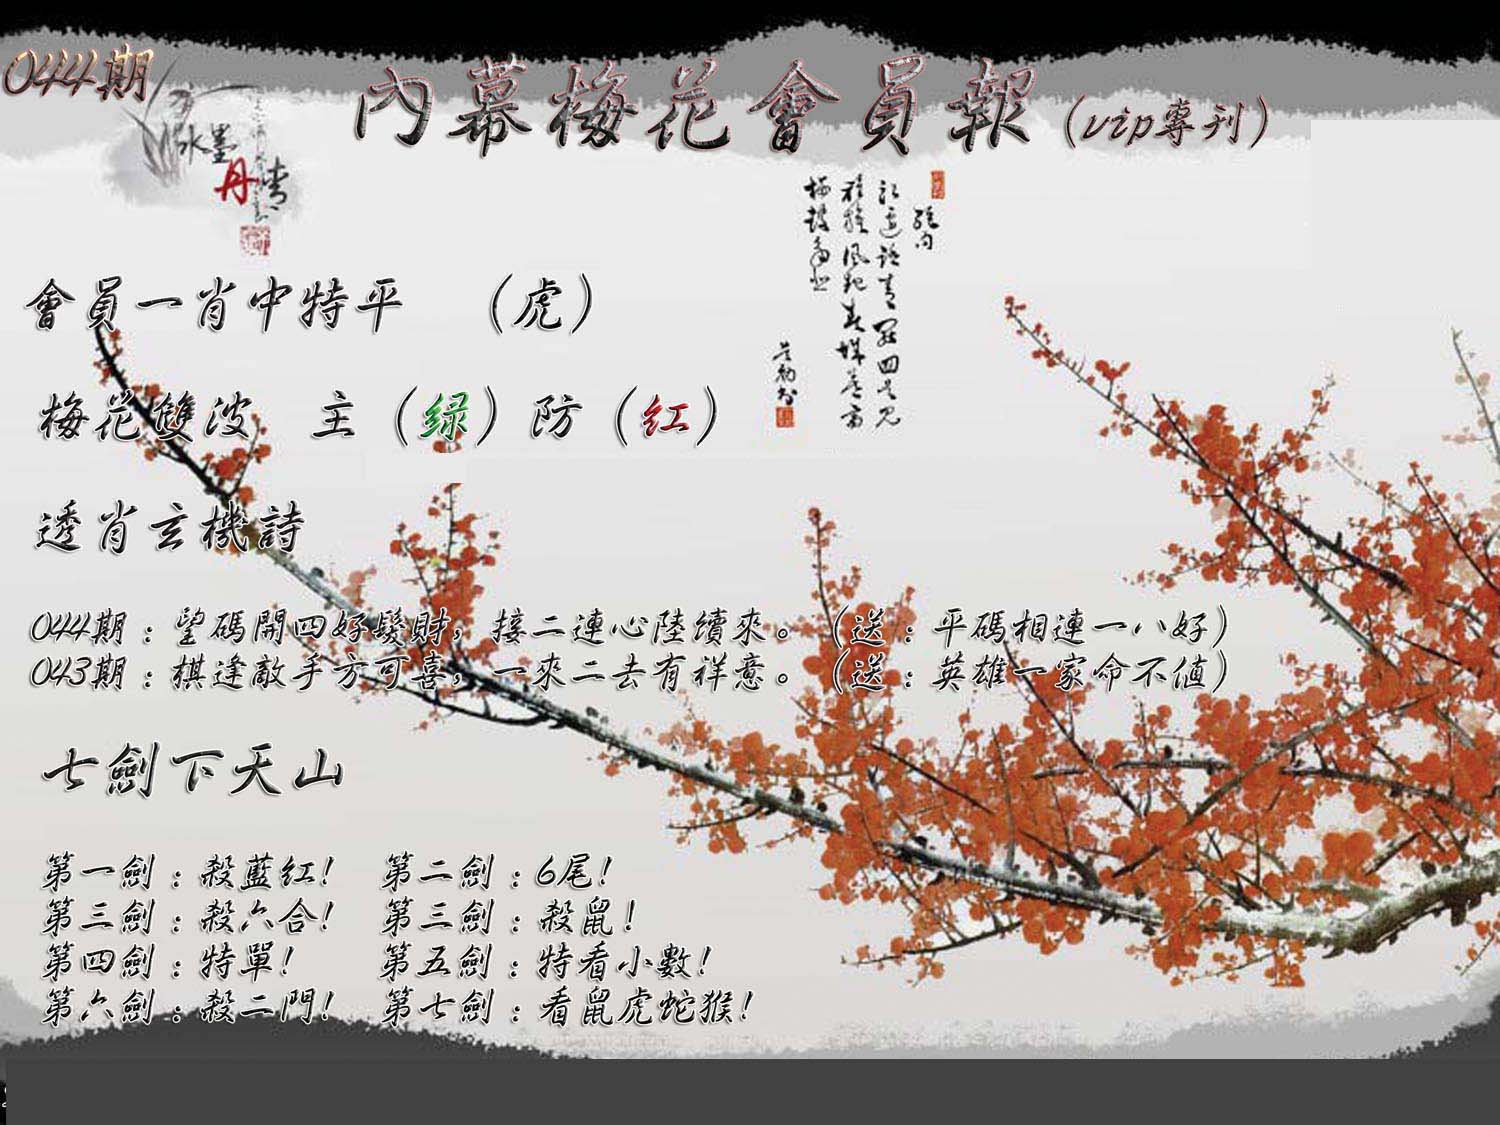 044期
內幕梅花會員報(vip專刊)
水墨
丹青
會員一肖中特平 (虎)
梅花雙波 主(綠)防(紅)
透肖玄機詩
044期:望碼開四好發財,接二連心陸續來。(送:平碼相連一八好)
043期:棋逢敵手方可喜,一來二去有祥意。(送:英雄一家命不值)
七劍下天山
第一劍:殺藍紅! 第二劍:6尾!
第三劍:殺六合! 第三劍:殺鼠!
第四劍:特單! 第五劍:特看小數!
第六劍:殺二門! 第七劍:看鼠虎蛇猴!